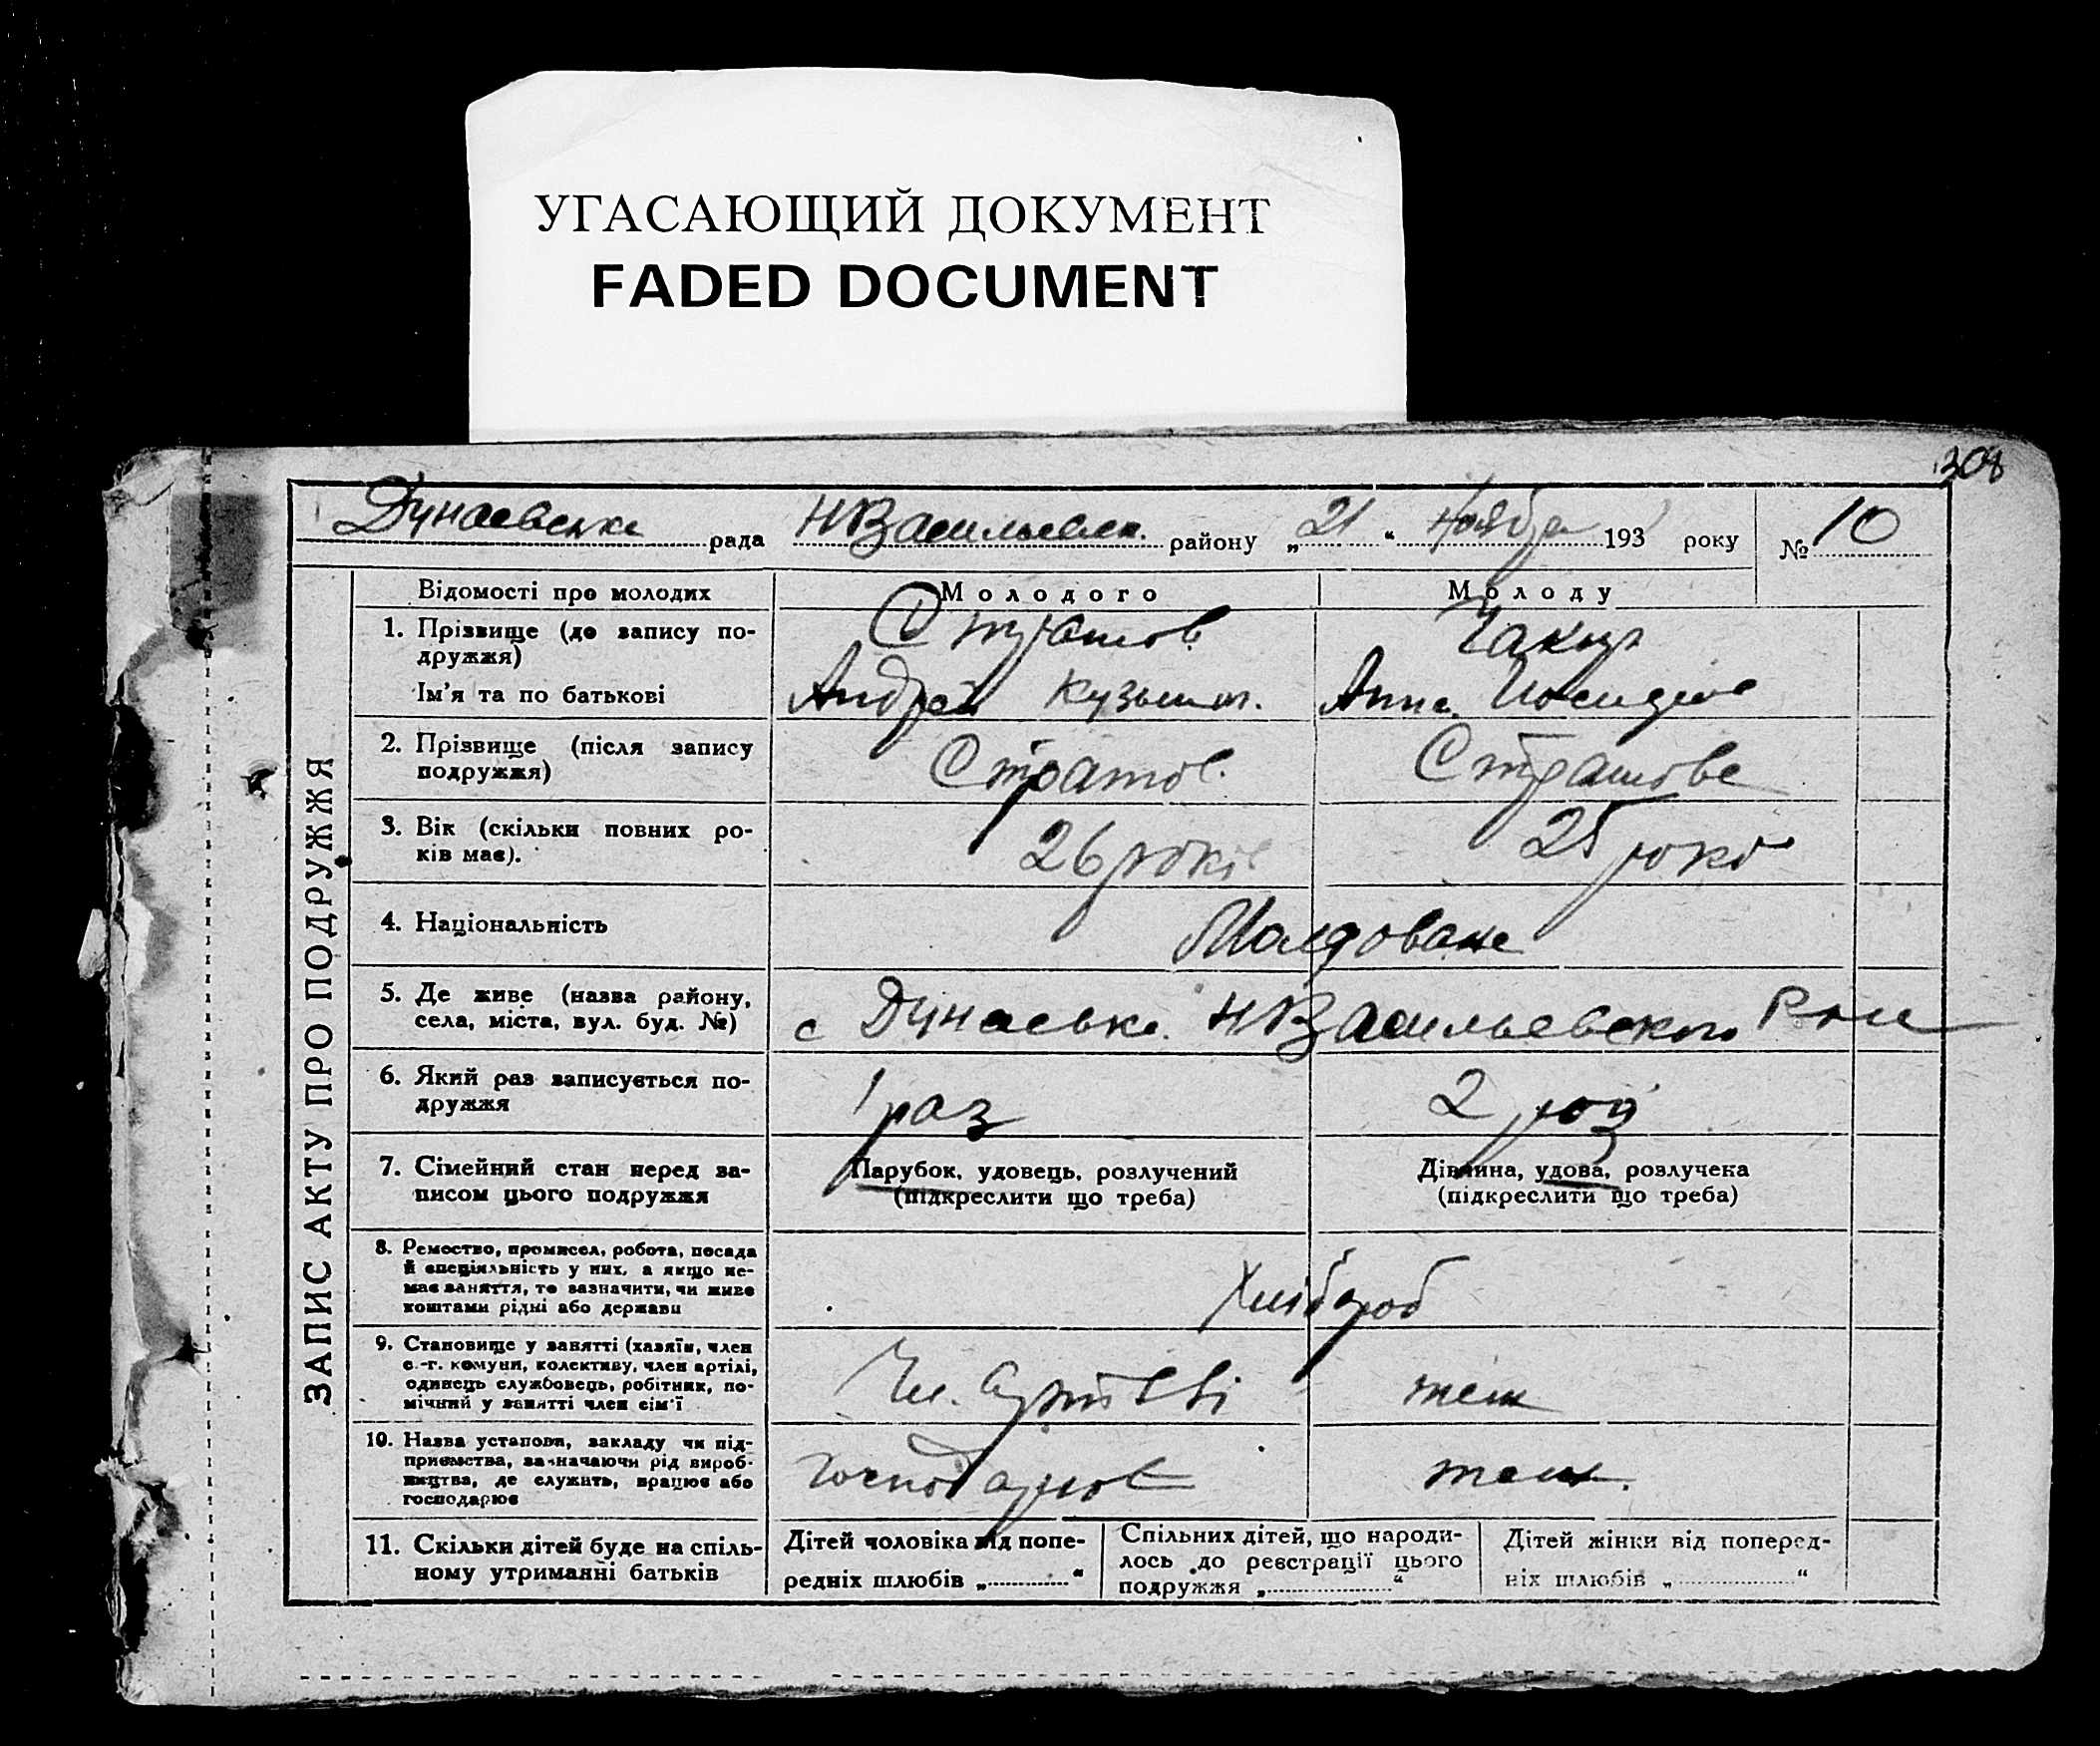 УГАСАЮЩИЙ ДОКУМЕНТ
FADED DOCUMENT
308
Дунаевська рада НВасильевск. району „21“ Ноября 193 року № 10
ЗАПИС АКТУ ПРО ПОДРУЖЖЯ
Відомості про молодих Молодого Молоду
1. Прізвище (до запису по-
дружжя)
Стратов Чакир
Ім'я та по батькові Андрей Кузьмич. Анна
2. Прізвище (після запису
подружжя)
Стратов. Стратова
3. Вік (скільки повних ро-
ків має).
26 років 25 років
4. Національність Молдоване
5. Де живе (назва району,
села, міста, вул. буд. №)
с Дунаевка. НВасильевского
6. Який раз записується по-
дружжя
1 раз 2 раз
7. Сімейний стан перед за-
писом цього подружжя
Парубок, удовець, розлучений
(підкреслити що треба)
Дівчина, удова, розлучена
(підкреслити що треба)
8. Ремество, промисел, робота, посада
й спеціяльність у них, а якщо не-
має заняття, то зазначити, чи живе
коштами рідні або держави
Хлібороб
9. Становище у занятті (хазяїн, член
с.-г. комуни, колективу, член артілі,
одинець службовець, робітник, по-
мічний у занятті член сім'ї
Чл. Артілі теж
10. Назва установи, закладу чи під-
приємства, зазначаючи рід вироб-
ництва, де служить, працює або
господарює
теж.
11. Скільки дітей буде на спіль-
ному утриманні батьків
Дітей чоловіка від попе-
редніх шлюбів „“
Спільних дітей, що народи-
лось до реєстрації цього
подружжя „“
Дітей жінки від поперед-
ніх шлюбів „“